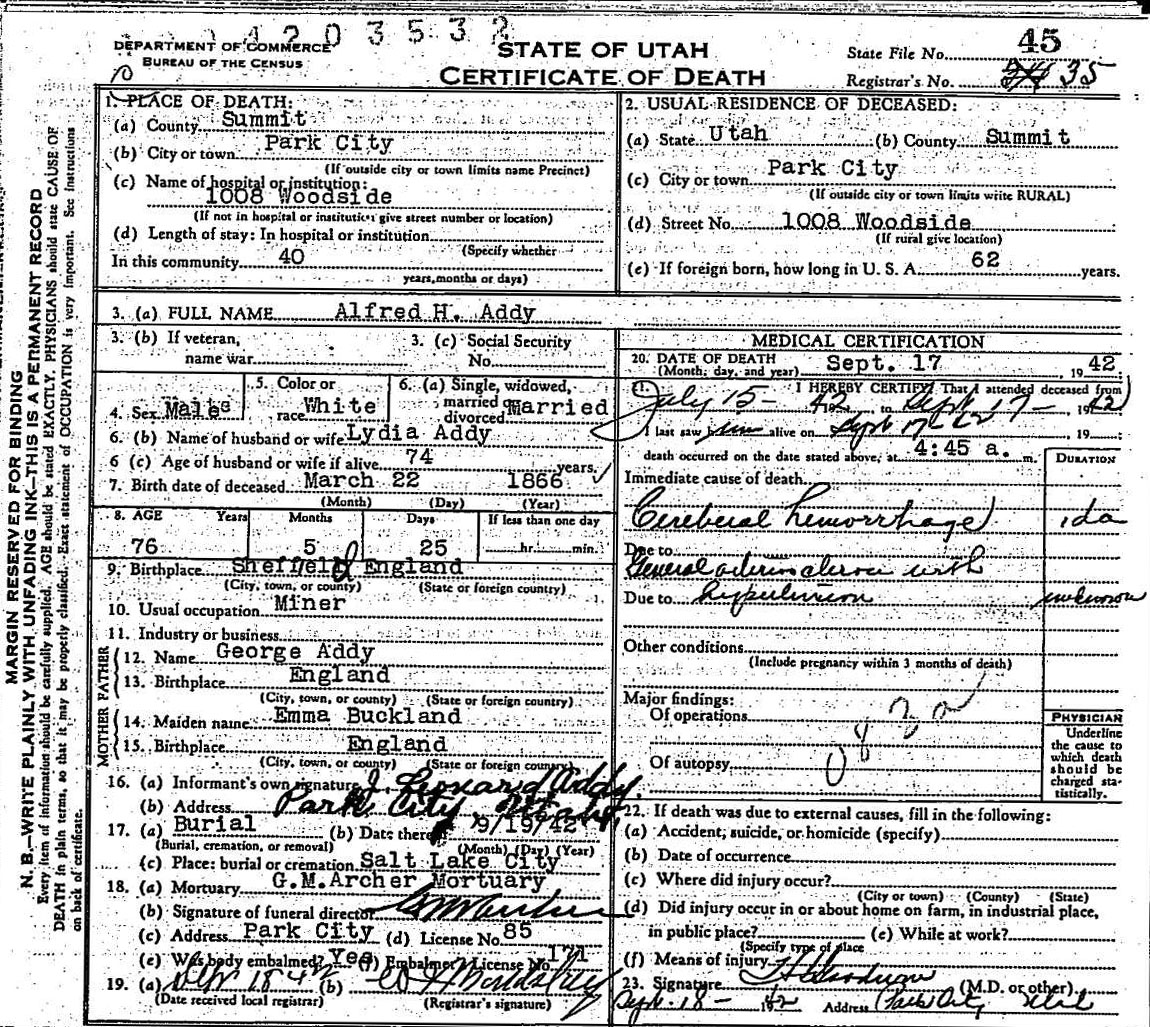 420 3532
DEPARTMENT OF COMMERCE
BUREAU OF THE CENSUS
STATE OF UTAH
CERTIFICATE OF DEATH
State File No. 45
Registrar's No. 35
MARGIN RESERVED FOR BINDING
N. B.—WRITE PLAINLY WITH UNFADING INK—THIS IS A PERMANENT RECORD
Every item of information should be carefully supplied. AGE should be stated EXACTLY. PHYSICIANS should state CAUSE OF
DEATH in plain terms, so that it may be properly classified. Exact statement of OCCUPATION is very important. See Instructions
on back of certificate.
1. PLACE OF DEATH:
(a) County Summit
(b) City or town Park City
(If outside city or town limits name Precinct)
(c) Name of hospital or institution:
1008 Woodside
(If not in hospital or institution give street number or location)
(d) Length of stay: In hospital or institution
(Specify whether
In this community 40
years, months or days)
2. USUAL RESIDENCE OF DECEASED:
(a) State Utah (b) County Summit
(c) City or town Park City
(If outside city or town limits write RURAL)
(d) Street No. 1008 Woodside
(If rural give location)
(e) If foreign born, how long in U. S. A. 62 years.
3. (a) FULL NAME Alfred H. Addy
3. (b) If veteran,
name war
3. (c) Social Security
No.
4. Sex Male
5. Color or
race White
6. (a) Single, widowed,
married or
divorced Married
6. (b) Name of husband or wife Lydia Addy
6 (c) Age of husband or wife if alive 74 years.
7. Birth date of deceased March 22 1866
(Month) (Day) (Year)
8. AGE Years Months Days If less than one day
76 5 25 hr. min.
9. Birthplace Sheffield England
(City, town, or county) (State or foreign country)
10. Usual occupation Miner
11. Industry or business
FATHER
12. Name George Addy
13. Birthplace England
(City, town, or county) (State or foreign country)
MOTHER
14. Maiden name Emma Buckland
15. Birthplace England
(City, town, or county) (State or foreign country)
16. (a) Informant's own signature J. Leonard Addy
(b) Address Park City, Utah
17. (a) Burial (b) Date thereof 9/19/42
(Burial, cremation, or removal) (Month) (Day) (Year)
(c) Place: burial or cremation Salt Lake City
18. (a) Mortuary G.M.Archer Mortuary
(b) Signature of funeral director GM Archer
(c) Address Park City (d) License No. 85
(e) Was body embalmed? Yes (f) Embalmer's License No. 171
19. (a) Sept 18 42 (b)
(Date received local registrar) (Registrar's signature)
MEDICAL CERTIFICATION
20. DATE OF DEATH Sept. 17 1942
(Month, day, and year)
21. I HEREBY CERTIFY That I attended deceased from
July 15- 42 to Sept 17- 1942
I last saw him alive on Sept 17 42 19
death occurred on the date stated above, at 4:45 a. m.
DURATION
Immediate cause of death
Cerebral hemorrhage 1 da
Due to
General arteriosclerosis with
Due to hypertension unknown
Other conditions
(Include pregnancy within 3 months of death)
Major findings:
Of operations
Of autopsy
83a
PHYSICIAN
Underline
the cause to
which death
should be
charged sta-
tistically.
22. If death was due to external causes, fill in the following:
(a) Accident, suicide, or homicide (specify)
(b) Date of occurrence
(c) Where did injury occur?
(City or town) (County) (State)
(d) Did injury occur in or about home on farm, in industrial place,
in public place? (e) While at work?
(Specify type of place
(f) Means of injury
23. Signature (M.D. or other)
Sept. 18- 42 Address Park City Utah